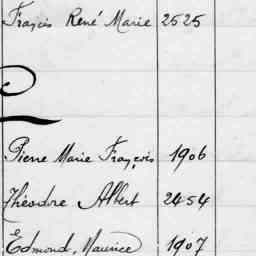 Français René Marie 2525
Pierre Marie François 1906
Théodre Albert 2454
Edmond, Maurice 1907